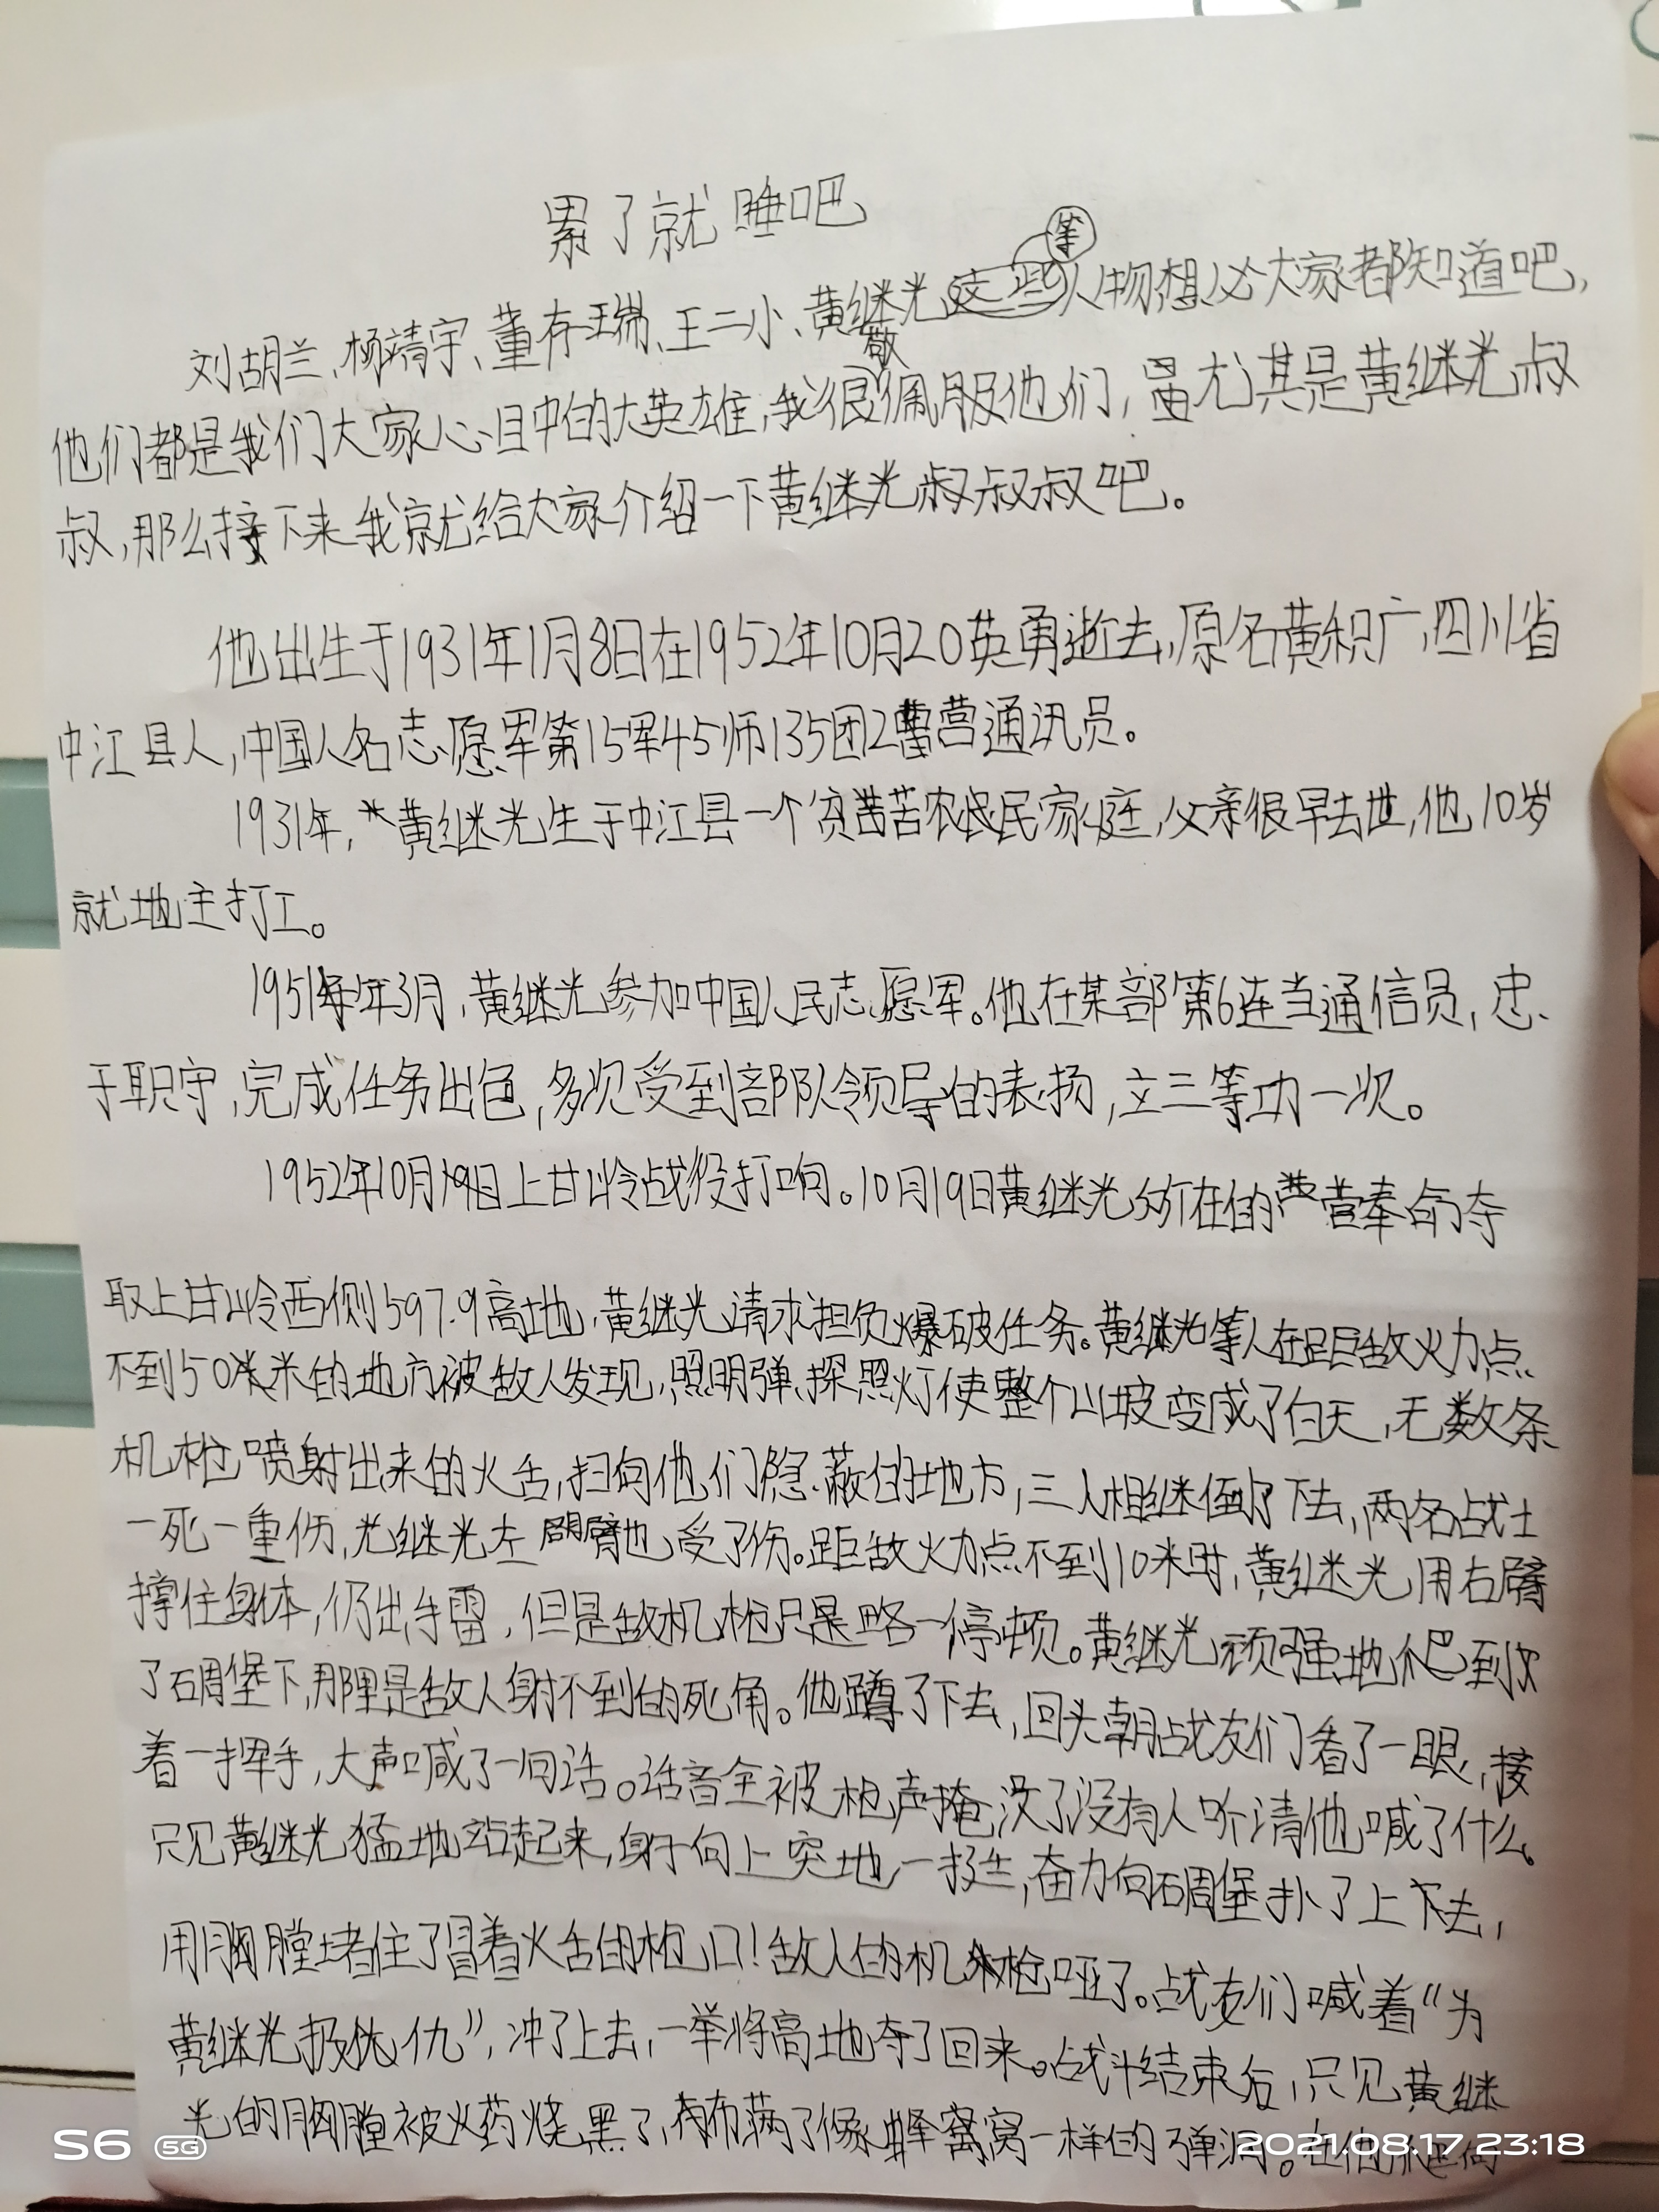 累了就睡吧
等
刘胡兰、杨靖宇、董存瑞、王二小、黄继光这些人物想必大家都知道吧,
敬
他们都是我们大家心目中的大英雄,我很佩服他们,尤其是黄继光叔
叔,那么接下来我就给大家介绍一下黄继光叔叔叔吧。
他出生于1931年1月8日在1952年10月20英勇逝去,原名黄积广,四川省
中江县人,中国人名志愿军第15军45师135团2营通讯员。
1931年,黄继光生于中江县一个贫苦农民家庭,父亲很早去世,他10岁
就地主打工。
1951年3月,黄继光参加中国人民志愿军。他在某部第6连当通信员,忠
于职守,完成任务出色,多次受到部队领导的表扬,立三等功一次。
1952年10月19日上甘岭战役打响。10月19日黄继光所在的营奉命夺
取上甘岭西侧597.9高地,黄继光请求担负爆破任务。黄继光等人在距敌火力点
不到50米的地方被敌人发现,照明弹、探照灯使整个山坡变成了白天,无数条
机枪喷射出来的火舌,扫向他们隐蔽的地方,三人相继倒了下去,两名战士
一死一重伤,光继光左臂也受了伤。距敌火力点不到10米时,黄继光用右臂
撑住身体,仍出手雷,但是敌机枪只是略一停顿。黄继光顽强地爬到
了碉堡下,那里是敌人射不到的死角。他蹲了下去,回头朝战友们看了一眼,接
着一挥手,大声喊了一句话。话音全被枪声掩没了没有人听清他喊了什么。
只见黄继光猛地站起来,身子向上突地一挺,奋力向碉堡扑了上下去,
用胸膛堵住了冒着火舌的枪口!敌人的机枪哑了。战友们喊着“为
黄继光报仇”,冲了上去,一举将高地夺了回来。战斗结束后,只见黄继
光的胸膛被火药烧黑了,布满了像蜂窝窝一样的弹洞。在他
S6 5G
2021.08.17 23:18